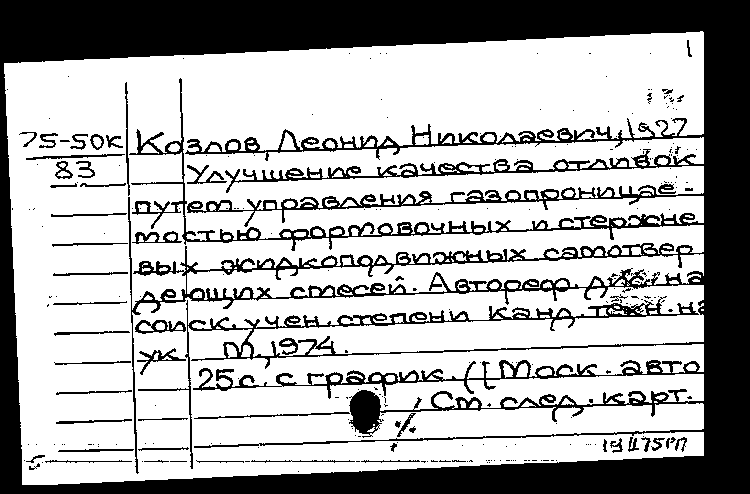 1
75-50к Козлов, Леонид Николаевич, 1927
83 Улучшение качества отливок
путем управления газопроницае-
мостью формовочных и стержне
вых жидкоподвижных самотвер
деющих смесей. Автореф. дис. на
соиск. учен. степени канд. техн. на
ук. М., 1974.
25с. с график. ([Моск. авто
См. след. карт.